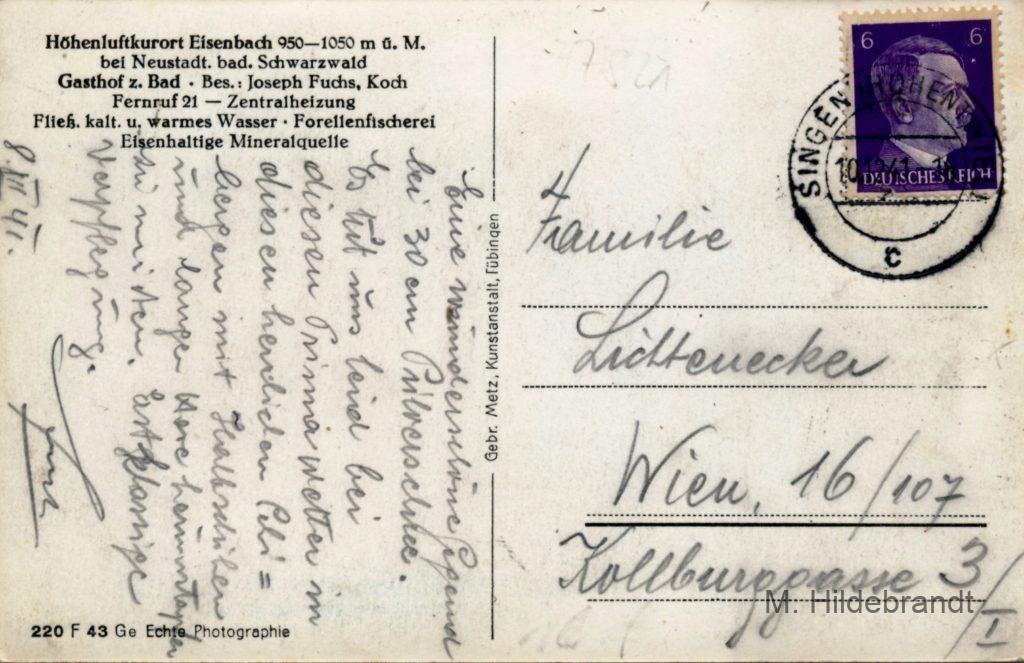 Höhenluftkurort Eisenbach 950—1050 m ü. M.
bei Neustadt. bad. Schwarzwald
Gasthof z. Bad · Bes.: Joseph Fuchs, Koch
Fernruf 21 — Zentralheizung
Fließ. kalt. u. warmes Wasser · Forellenfischerei
Eisenhaltige Mineralquelle
8. XII 41.
Eine wunderschöne Gegend
bei 30 cm Pulverschnee.
Es tut uns leid bei
diesen Prima wetter in
diesen herrlichen Schi=
bergen mit Halbschuhen
und langer Hose
zu müssen. Erstklassige
Verpflegung.
Gebr. Metz, Kunstanstalt, Tübingen
6 6
DEUTSCHES REICH
SINGEN (HOHENTWIEL)
10.12.41
c
Familie
Lichtenecker
Wien, 16/107
Kollburggasse 3/I
220 F 43 Ge Echte Photographie
M. Hildebrandt